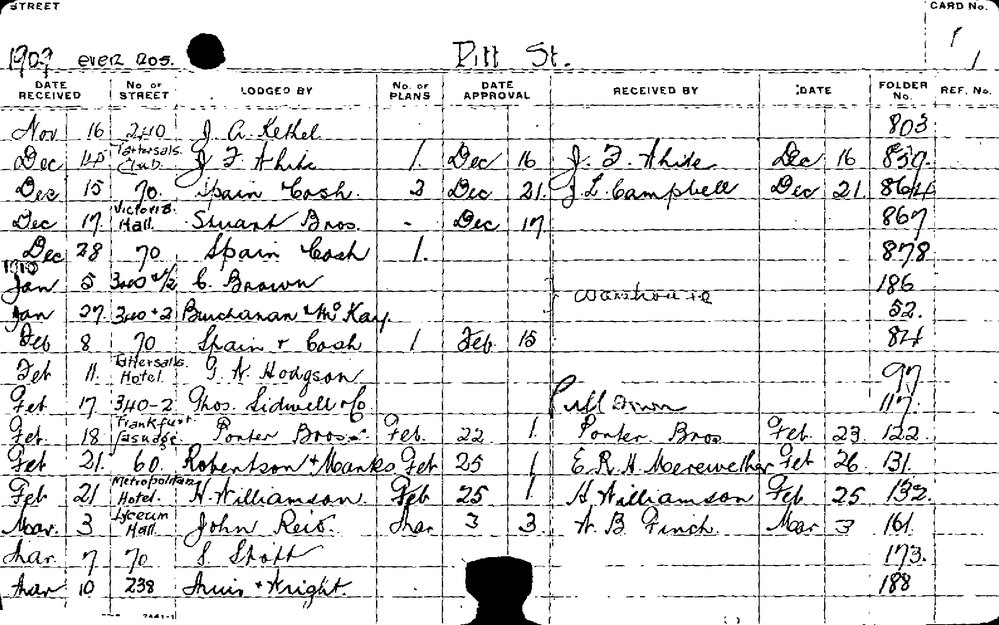 STREET CARD No.
1909 over 20s. Pitt St. 1
DATE RECEIVED No. OF STREET LODGED BY No. OF PLANS DATE APPROVAL RECEIVED BY DATE FOLDER No. REF. No.
Nov 16 240 J. A. Kethel 803
Dec Tattersals Club J. F. 1. Dec 16 J. F. Dec 16 859.
Dec 15 70. Spain Cosh. 2 Dec 21. J. L. Campbell Dec 21. 864
Dec 17. Victoria Hall. Stuart Bros. - Dec 17 867
Dec 28 70 Spain Cosh 1. 878
1910
Jan 5 C. Brown 186
Jan 27. 340+2 Buchanan & McKay. Warehouse 52.
Feb 8 70 Spain + Cosh 1 Feb 15 84
Feb 11. Tattersalls Hotel. Hodgson 97
Feb 17 340-2 Thos. Sidwell & Co Pull Down 117.
Feb 18 Frankfurt Porter Bros. Feb. 22 1. Porter Bros Feb 23 122
Feb 21. 60. Robertson + Marks Feb 25 1 E. R. H. Merewether Feb 26 131.
Feb 21 Metropolitan Hotel. H. Williamson. Feb 25 1. H Williamson Feb 25 132.
Mar. 3 Lyceum Hall. John Reid. Mar 3 3. A. B. Finch. Mar 3 161.
Mar. 7 70 173.
Mar 10 238 + Wright. 188